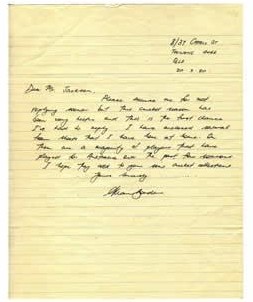 Dear Mr Jackson,
Please excuse me for not
replying sooner but this cricket season has
been very hectic and this is the first chance
I've had to reply. I have enclosed several
team sheets that I have here at home. On
them are a majority of players that have
played for Australia over the past few seasons
I hope they add to your nice cricket collection
Yours sincerely